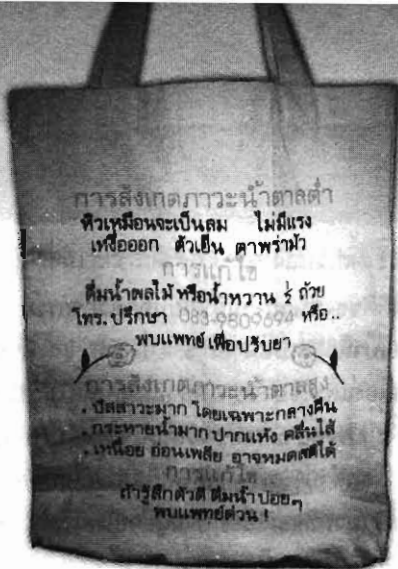 การสังเกตภาวะน้ำตาลต่ำ
หิวเหมือนจะเป็นลม ไม่มีแรง
เหงื่อออก ตัวเย็น ตาพร่ามัว
การแก้ไข
ดื่มน้ำผลไม้ หรือน้ำหวาน ½ ถ้วย
โทร. ปรึกษา 083-9809694 หรือ..
พบแพทย์ เพื่อปรับยา
การสังเกตภาวะน้ำตาลสูง
. ปัสสาวะมาก โดยเฉพาะกลางคืน
. กระหายน้ำมาก ปากแห้ง คลื่นไส้
. เหนื่อย อ่อนเพลีย อาจหมดสติได้
การแก้ไข
ถ้ารู้สึกตัวดี ดื่มน้ำบ่อยๆ
พบแพทย์ด่วน !